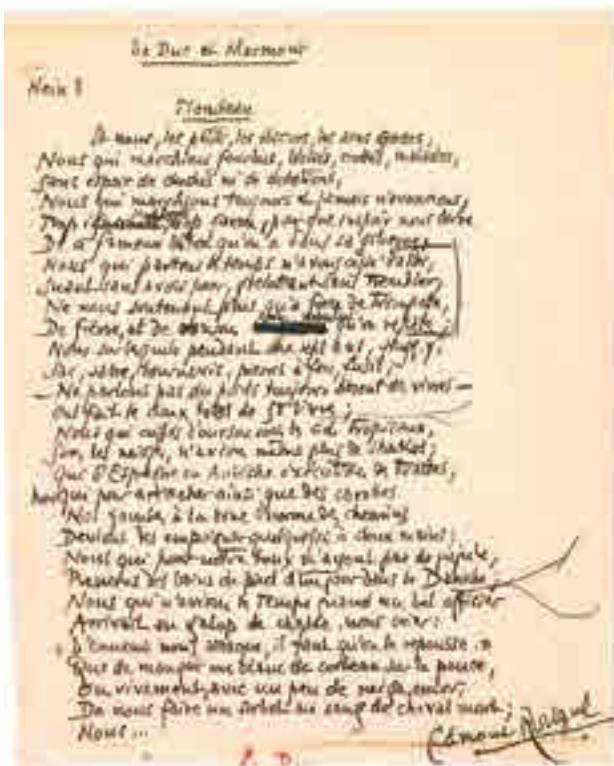 Le Duc et Marmont
Hein ?
Flambeau
nous, les petits, les obscurs, les sans grades,
Nous qui marchions fourbus, blessés, crottés, malades,
Sans espoir de duchés ni de dotations,
Nous qui marchions toujours et jamais n'avancions,
Trop trop pour que l'espoir nous berne
De ce fameux bâton qu'on a dans sa giberne,
Nous qui par tous temps n'avons cessé d'aller,
Suant sans avoir peur, grelottant sans trembler,
Ne nous soutenant plus qu'à force de trompette,
De fièvre, et de qu'on répète ;
Nous sur lesquels pendant dix sept ans,
Sac, sabre, tournevis, pierres à feu, fusil,
— Ne parlons pas du poids toujours absent des vivres —
Ont fait le doux total de livres ;
Nous qui coiffés d'oursons sous les ciels tropicaux,
Sous les neiges, n'avions même plus de shakos ;
Qui d'Espagne en Autriche des trottes,
Nous qui pour arracher ainsi que des carottes
Nos jambes à la boue énorme des chemins
Devions les empoigner quelquefois à deux mains ;
Nous qui pour notre toux n'ayant pas de jujube,
Prenions des bains de pied d'un jour dans le Danube
Nous qui n'avions le temps quand un bel officier
Arrivait au galop de chasse, nous crier :
L'ennemi nous attaque, il faut qu'on le repousse
Que de manger un blanc de corbeau sur le pouce,
Ou vivement, avec un peu de neige, encor,
De nous faire un sorbet au sang de cheval mort ;
Nous ...